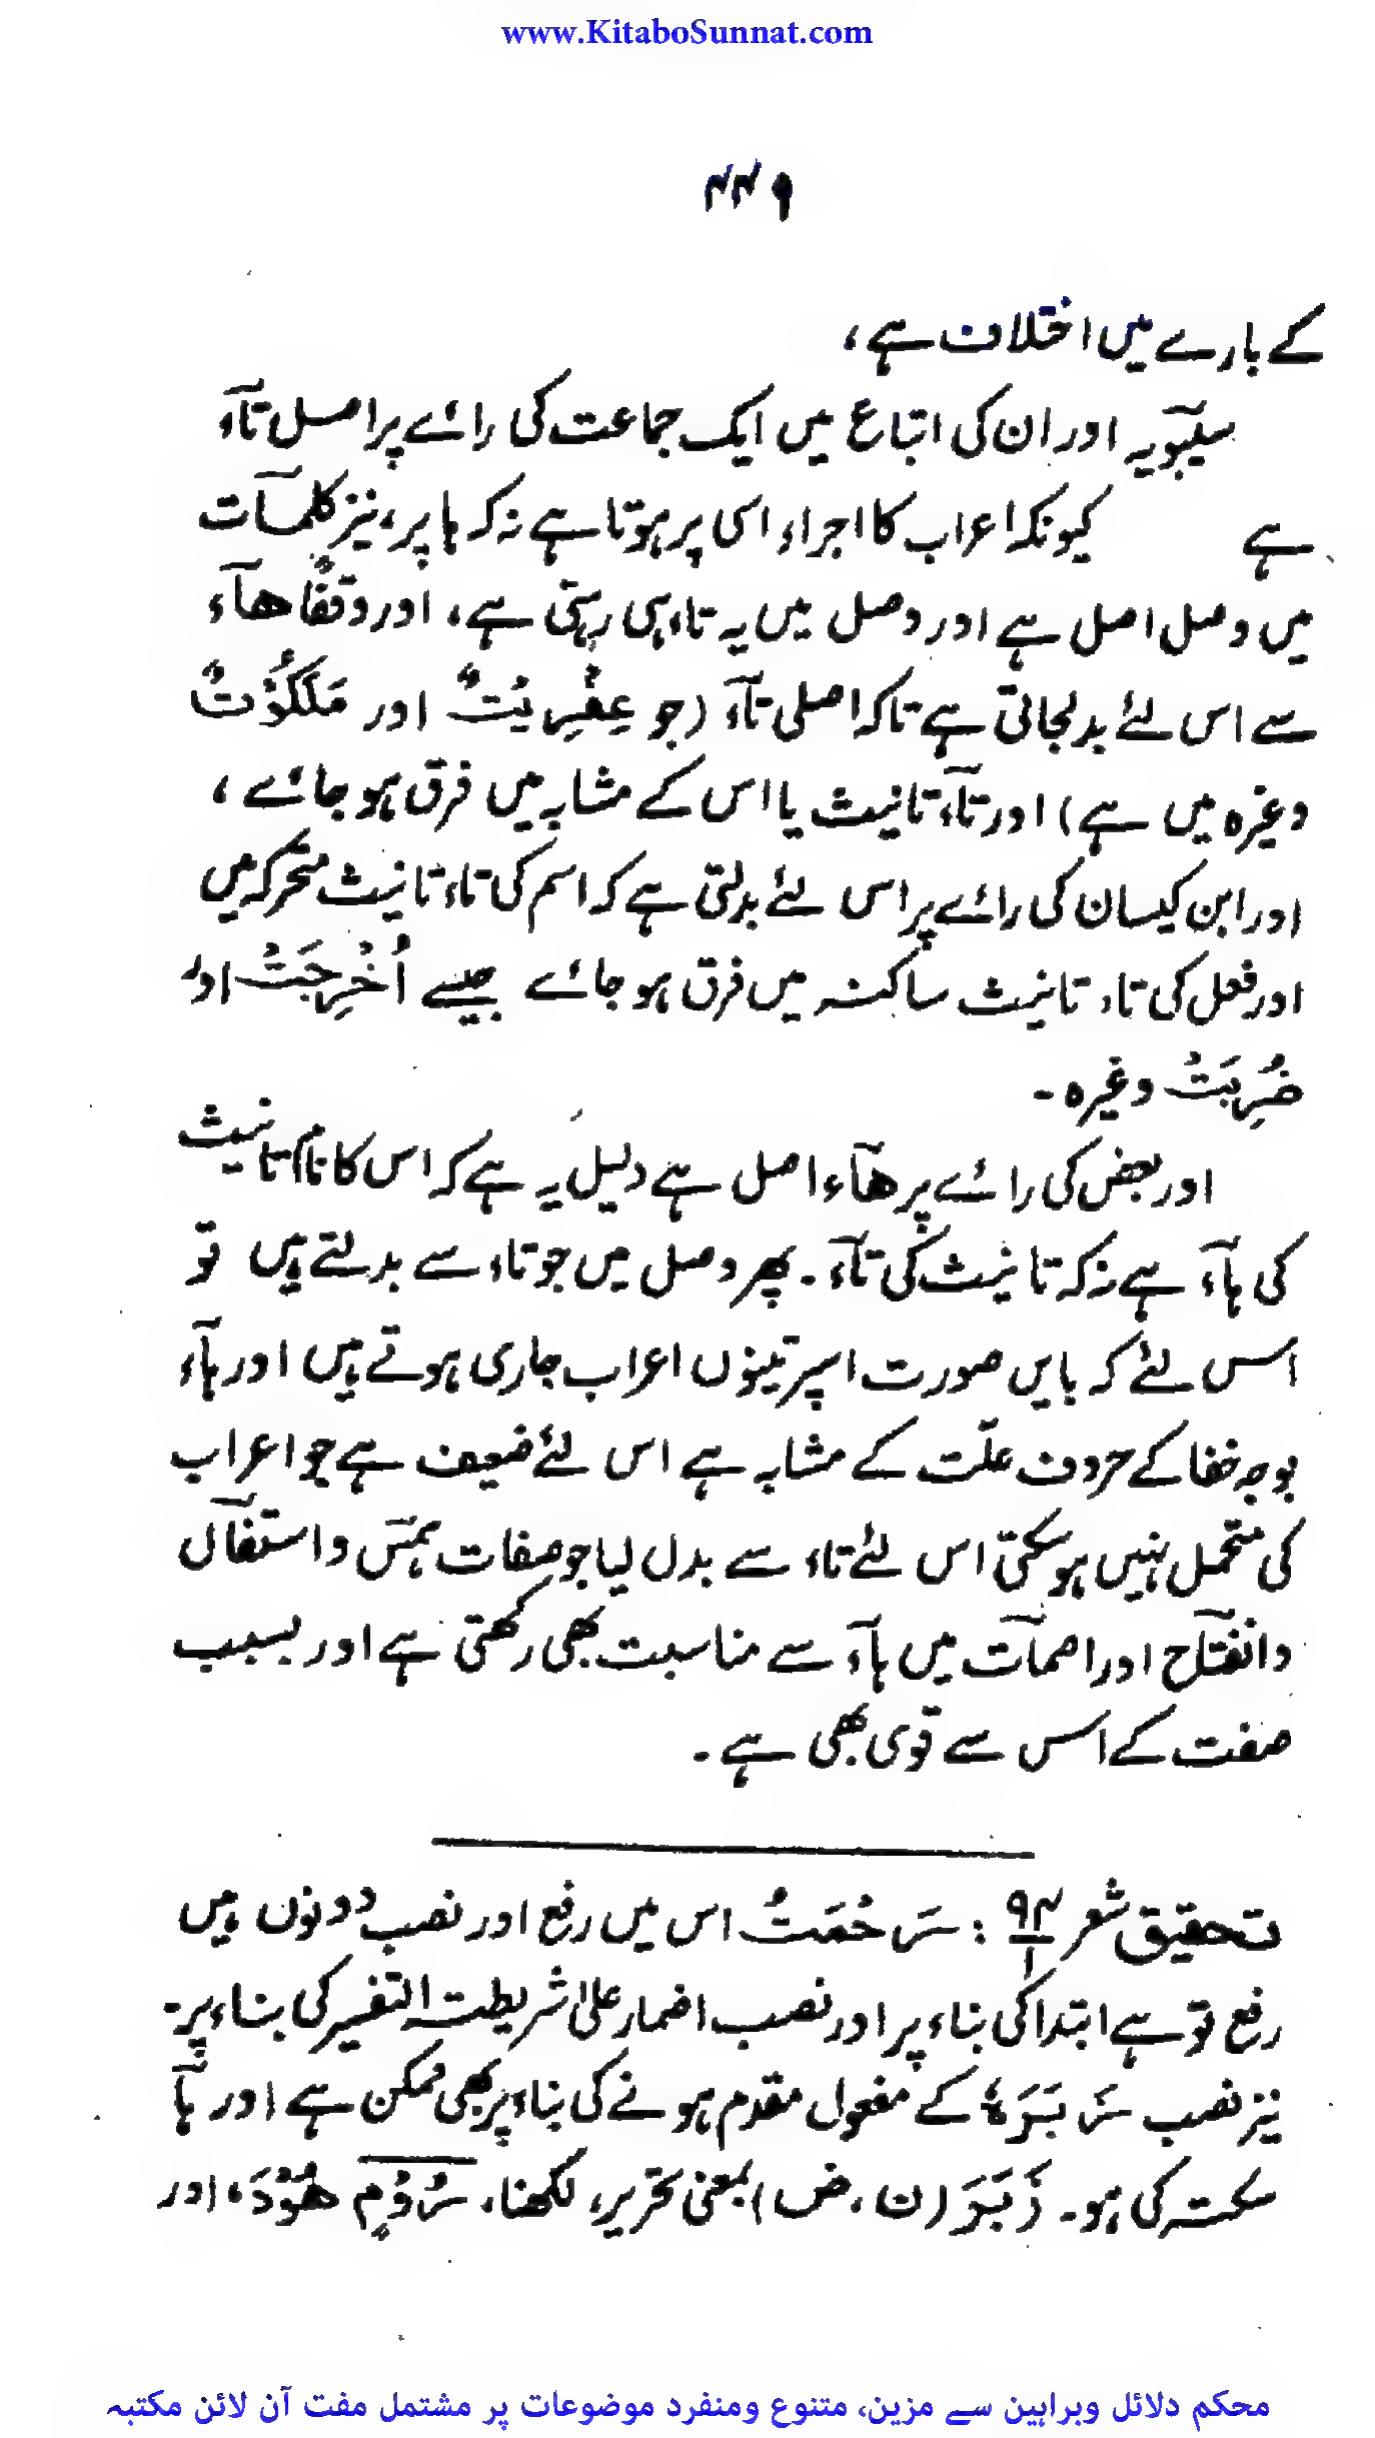 www.KitaboSunnat.com
۴۴۹
کے بارے میں اختلاف ہے،
سیبویہ اور ان کی اتباع میں ایک جماعت کی رائے پر اصل تآء
ہے کیونکہ اعراب کا اجراء اسی پر ہوتا ہے نہ کہ ہا پر، نیز کلمآت
میں وصل اصل ہے اور وصل میں یہ تاء ہی رہتی ہے، اور وقفًا ھآء
سے اس لئے بدلجاتی ہے تاکہ اصلی تآء (جو عِفْرِیْتٌ اور مَلَکُوْتٌ
وغیرہ میں ہے) اور تآء تانیث یا اس کے مشابہ میں فرق ہو جائے،
اور ابن کیسان کی رائے پر اس لئے بدلتی ہے کہ اسم کی تاء تانیث متحرکہ میں
اور فعل کی تاء تانیث ساکنہ میں فرق ہو جائے جیسے اُخْرِجَتْ اور
ضُرِبَتْ وغیرہ۔
اور بعض کی رائے پر ھآء اصل ہے دلیل یہ ہے کہ اس کا نام تانیث
کی ہآء ہے نہ کہ تانیث کی تآء۔ پھر وصل میں جو تاء سے بدلتے ہیں تو
اس لئے کہ بایں صورت اسپر تینوں اعراب جاری ہوتے ہیں اور ہآء
بوجہ خفا کے حروف علّت کے مشابہ ہے اس لئے ضعیف ہے جو اعراب
کی متحمل نہیں ہو سکتی اس لئے تاء سے بدل لیا جو صفات ہمس و استفآل
و انفتآح اور اصمآت میں ہآء سے مناسبت بھی رکھتی ہے اور بسبب
صفت کے اس سے قوی بھی ہے۔
تحقیق شعر ۹۴/۱ : رَحْمَتُ اس میں رفع اور نصب دونوں ہیں
رفع تو ہے ابتدا کی بناء پر اور نصب اضمار علیٰ شریطتہ التفسیر کی بناء پر۔
نیز نصب زَبَرَہْ کے مفعول مقدم ہونے کی بناء پر بھی ممکن ہے اور ہآ
سکتہ کی ہو۔ زَبَرَ (ن، ض) بمعنی تحریر، لکھنا، رُوْمٍ ھُوْدَ، اور
محکم دلائل وبراہین سے مزین، متنوع ومنفرد موضوعات پر مشتمل مفت آن لائن مکتبہ